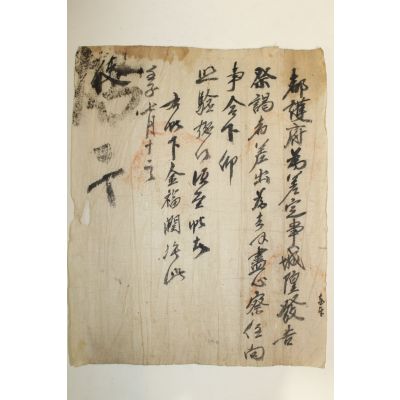 都護府爲差定事城隍發告
祭謁者差出爲去乎盡心察任向
事合下仰
照驗施行須至帖者
右帖下金 閏 准此
壬子 月十二
使